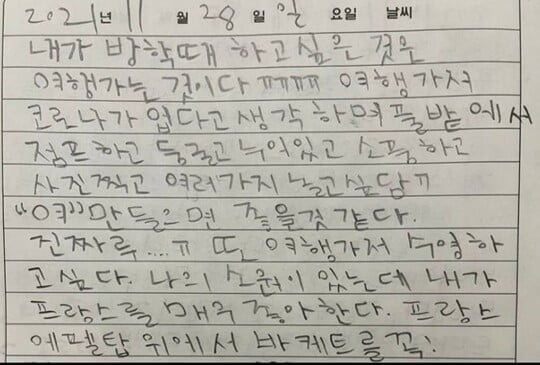 2021년 11월 28일 일요일 날씨
내가 방학때 하고싶은 것은
여행가는 것이다 ㅠㅠㅠㅠ 여행가저
코로나가 업다고 생각 하며 풀밭 에서
점프하고 둥굴고 누어있고 소풍하고
사진찍고 여러가지 놀고싶답ㅠ
"여"만 들으면 좋을것 같다.
진짜루....ㅠ 또 여행가저 수영하
고싶다. 나의 소원이 있는데 내가
프랑스를 매우 좋아한다. 프랑스
에펠탑 위에서 바케트를 꼭!